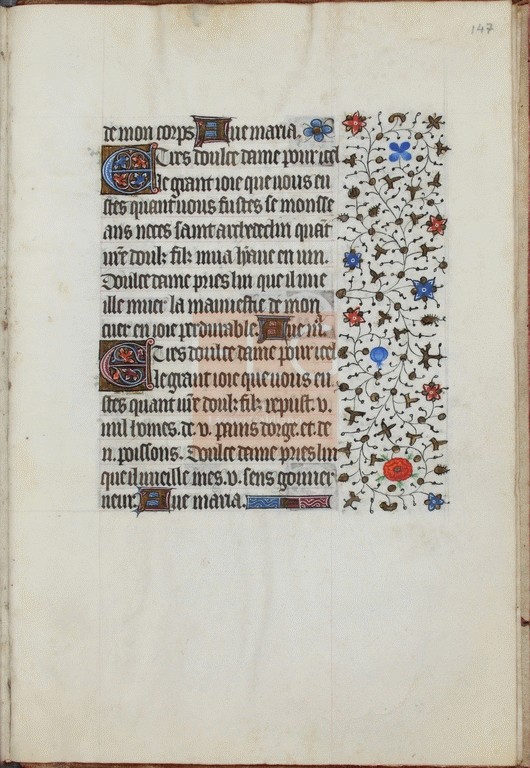 147
de mon corps. Aue maria.
E tres doulce dame pour icel
le grant ioie que uous eu
stes quant uous fustes se monsse
ans neces saint archedeclin quāt
ur̄e doulz filz mua liaue en uin.
Doulce dame pries lui que il me
ille muer la mauuestie de mon
cuer en ioie perdurable. Aue mͣ.
E tres doulce dame pour icel
le grant ioie que uous eu
stes quant ur̄e doulz filz reput .v.
mil homes. de .v. pains dorge. et de
.ii. poissons. Doulce dame pries lui
que il ueille mes .v. sens gouuer
neur. Aue maria.